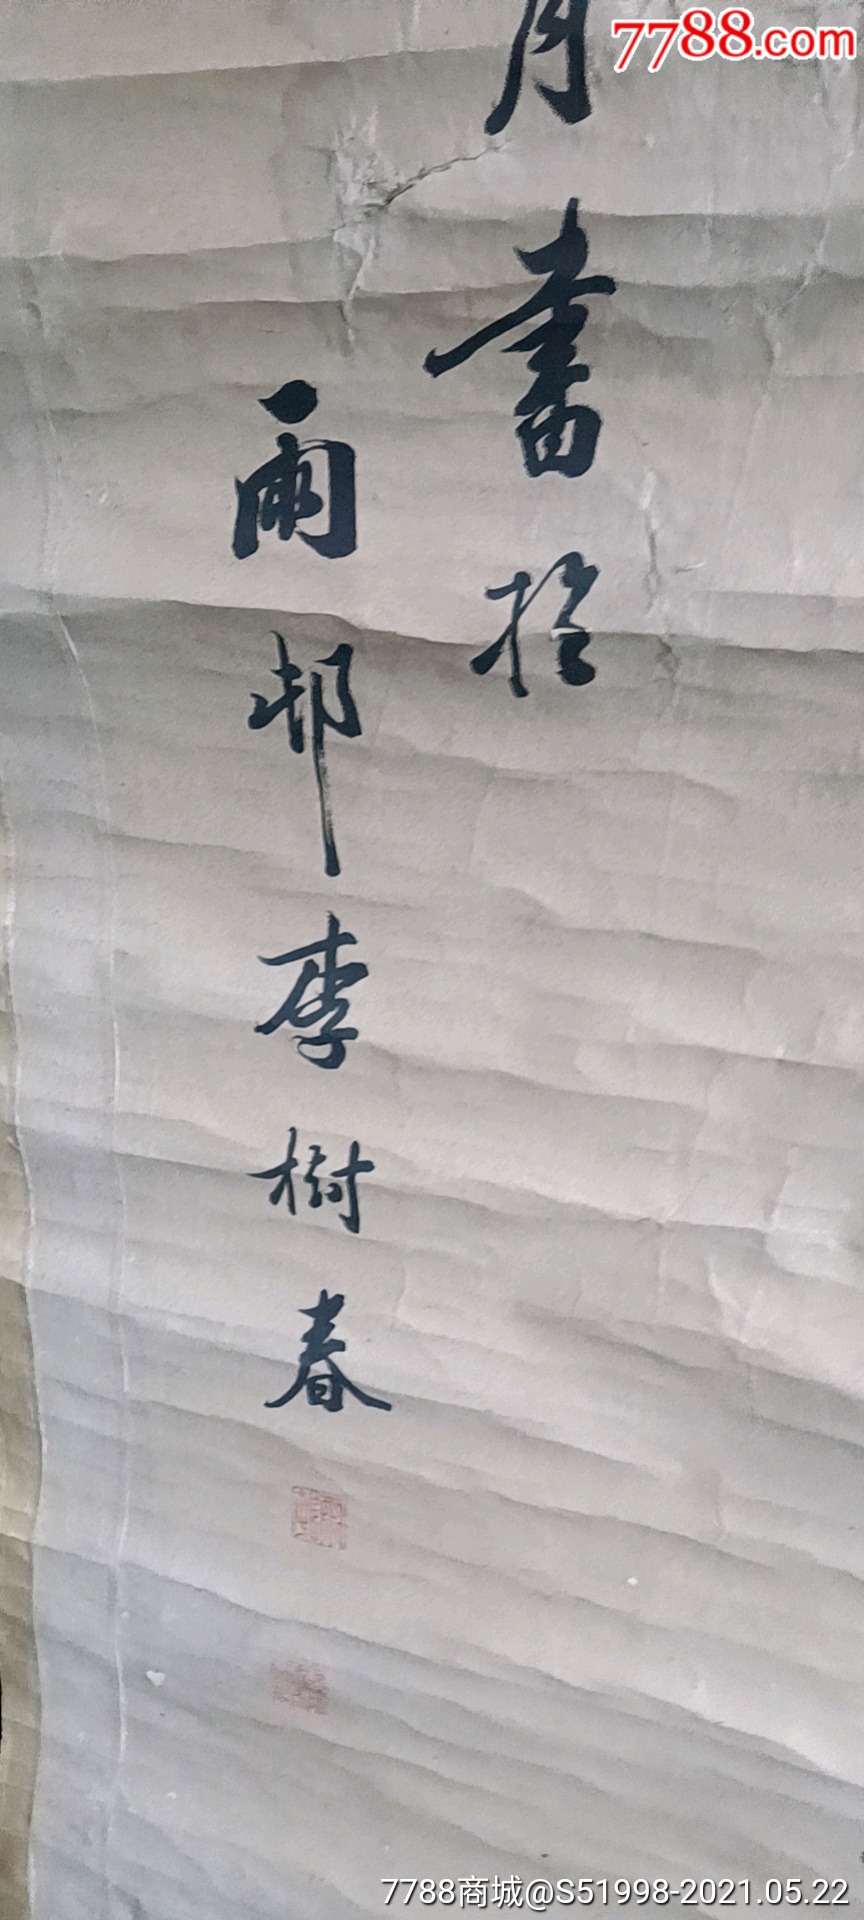 7788.com
月書於
雨邨李樹春
7788商城@S51998-2021.05.22